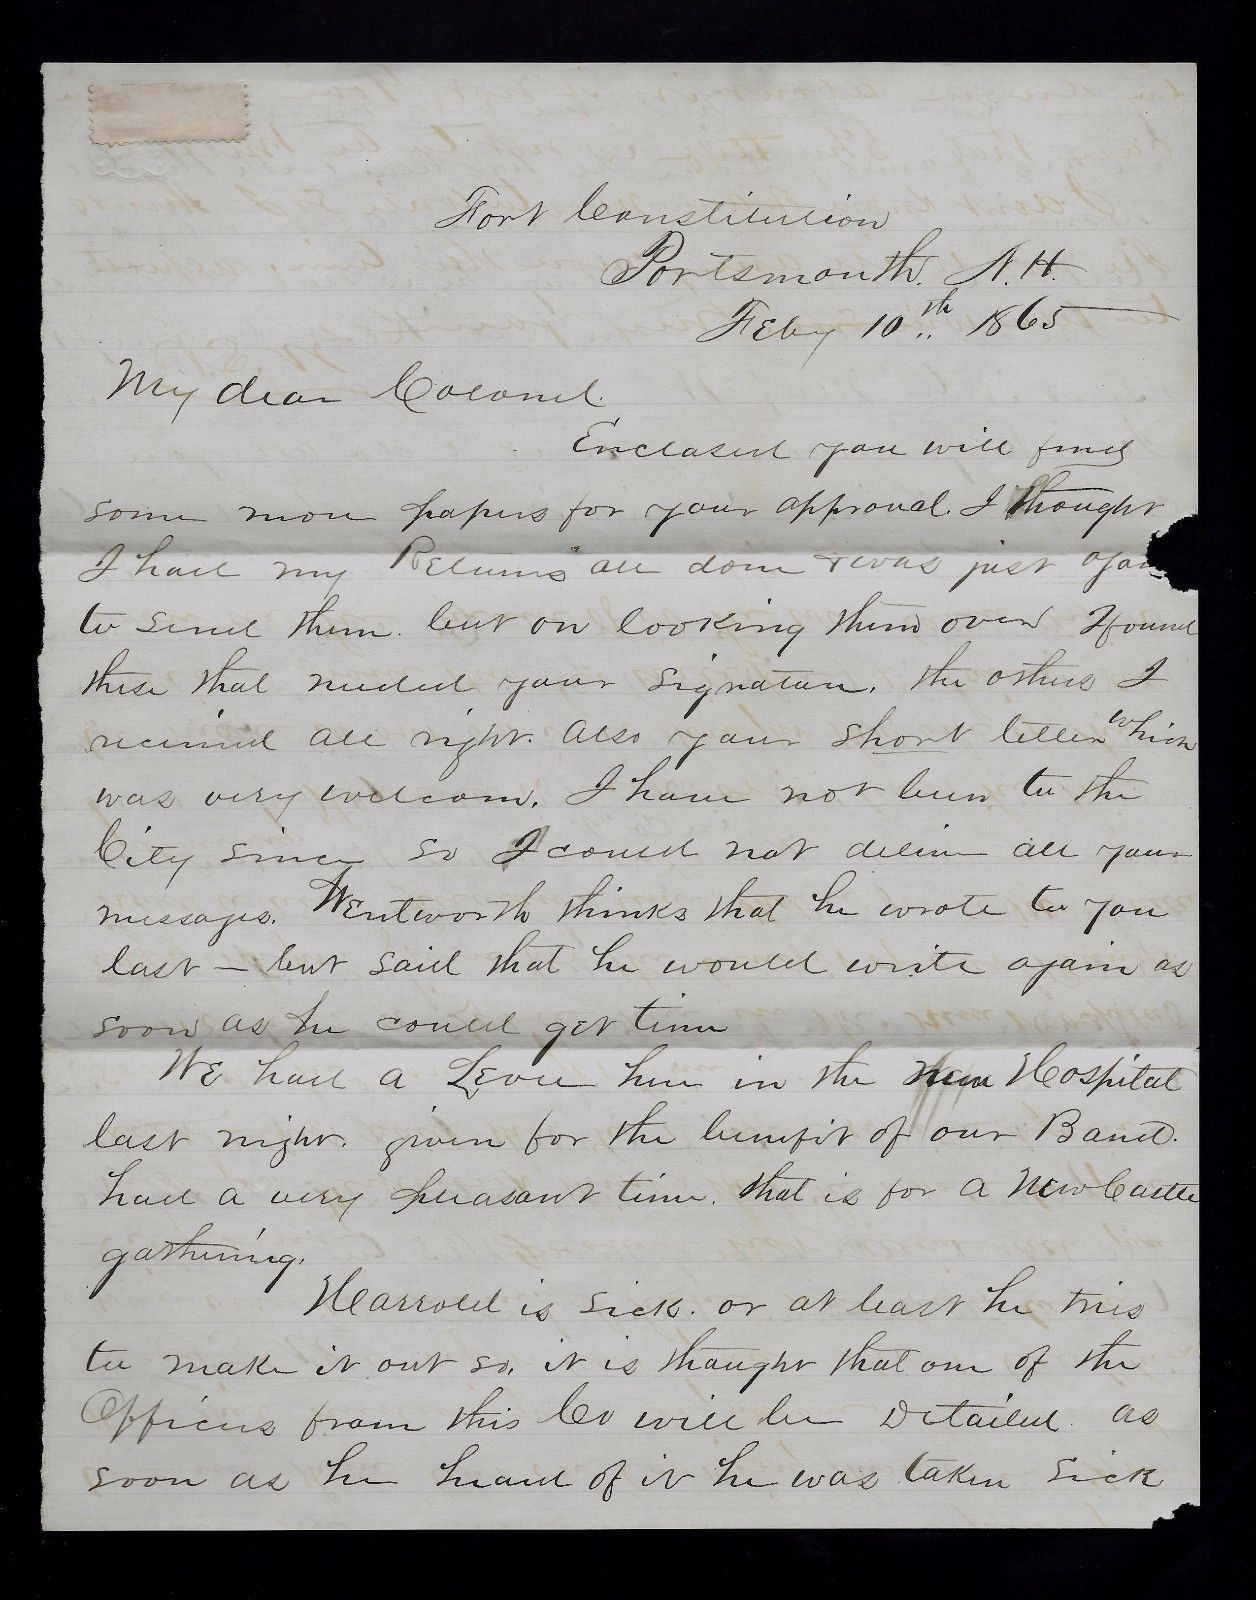 Fort Constitution
Portsmouth. N.H.
Feby 10th 1865
My dear Colonel.
Enclosed you will find
some more papers for your approval. I thought
I had my Returns all done & was just
to send them. but on looking them over I found
these that needed your signature. the others I
received all right. also your short letter which
was very welcome. I have not been to the
City since so I could not deliver all your
messages. Wentworth thinks that he wrote to you
last — but said that he would write again as
soon as he could get time
We had a Levee here in the new Hospital
last night. given for the benefit of our Band.
had a very pleasant time. that is for a New Castle
gathering.
Harrold is sick. or at least he tries
to make it out so. it is thought that one of the
Officers from this Co will be Detailed. as
soon as he heard of it he was taken sick